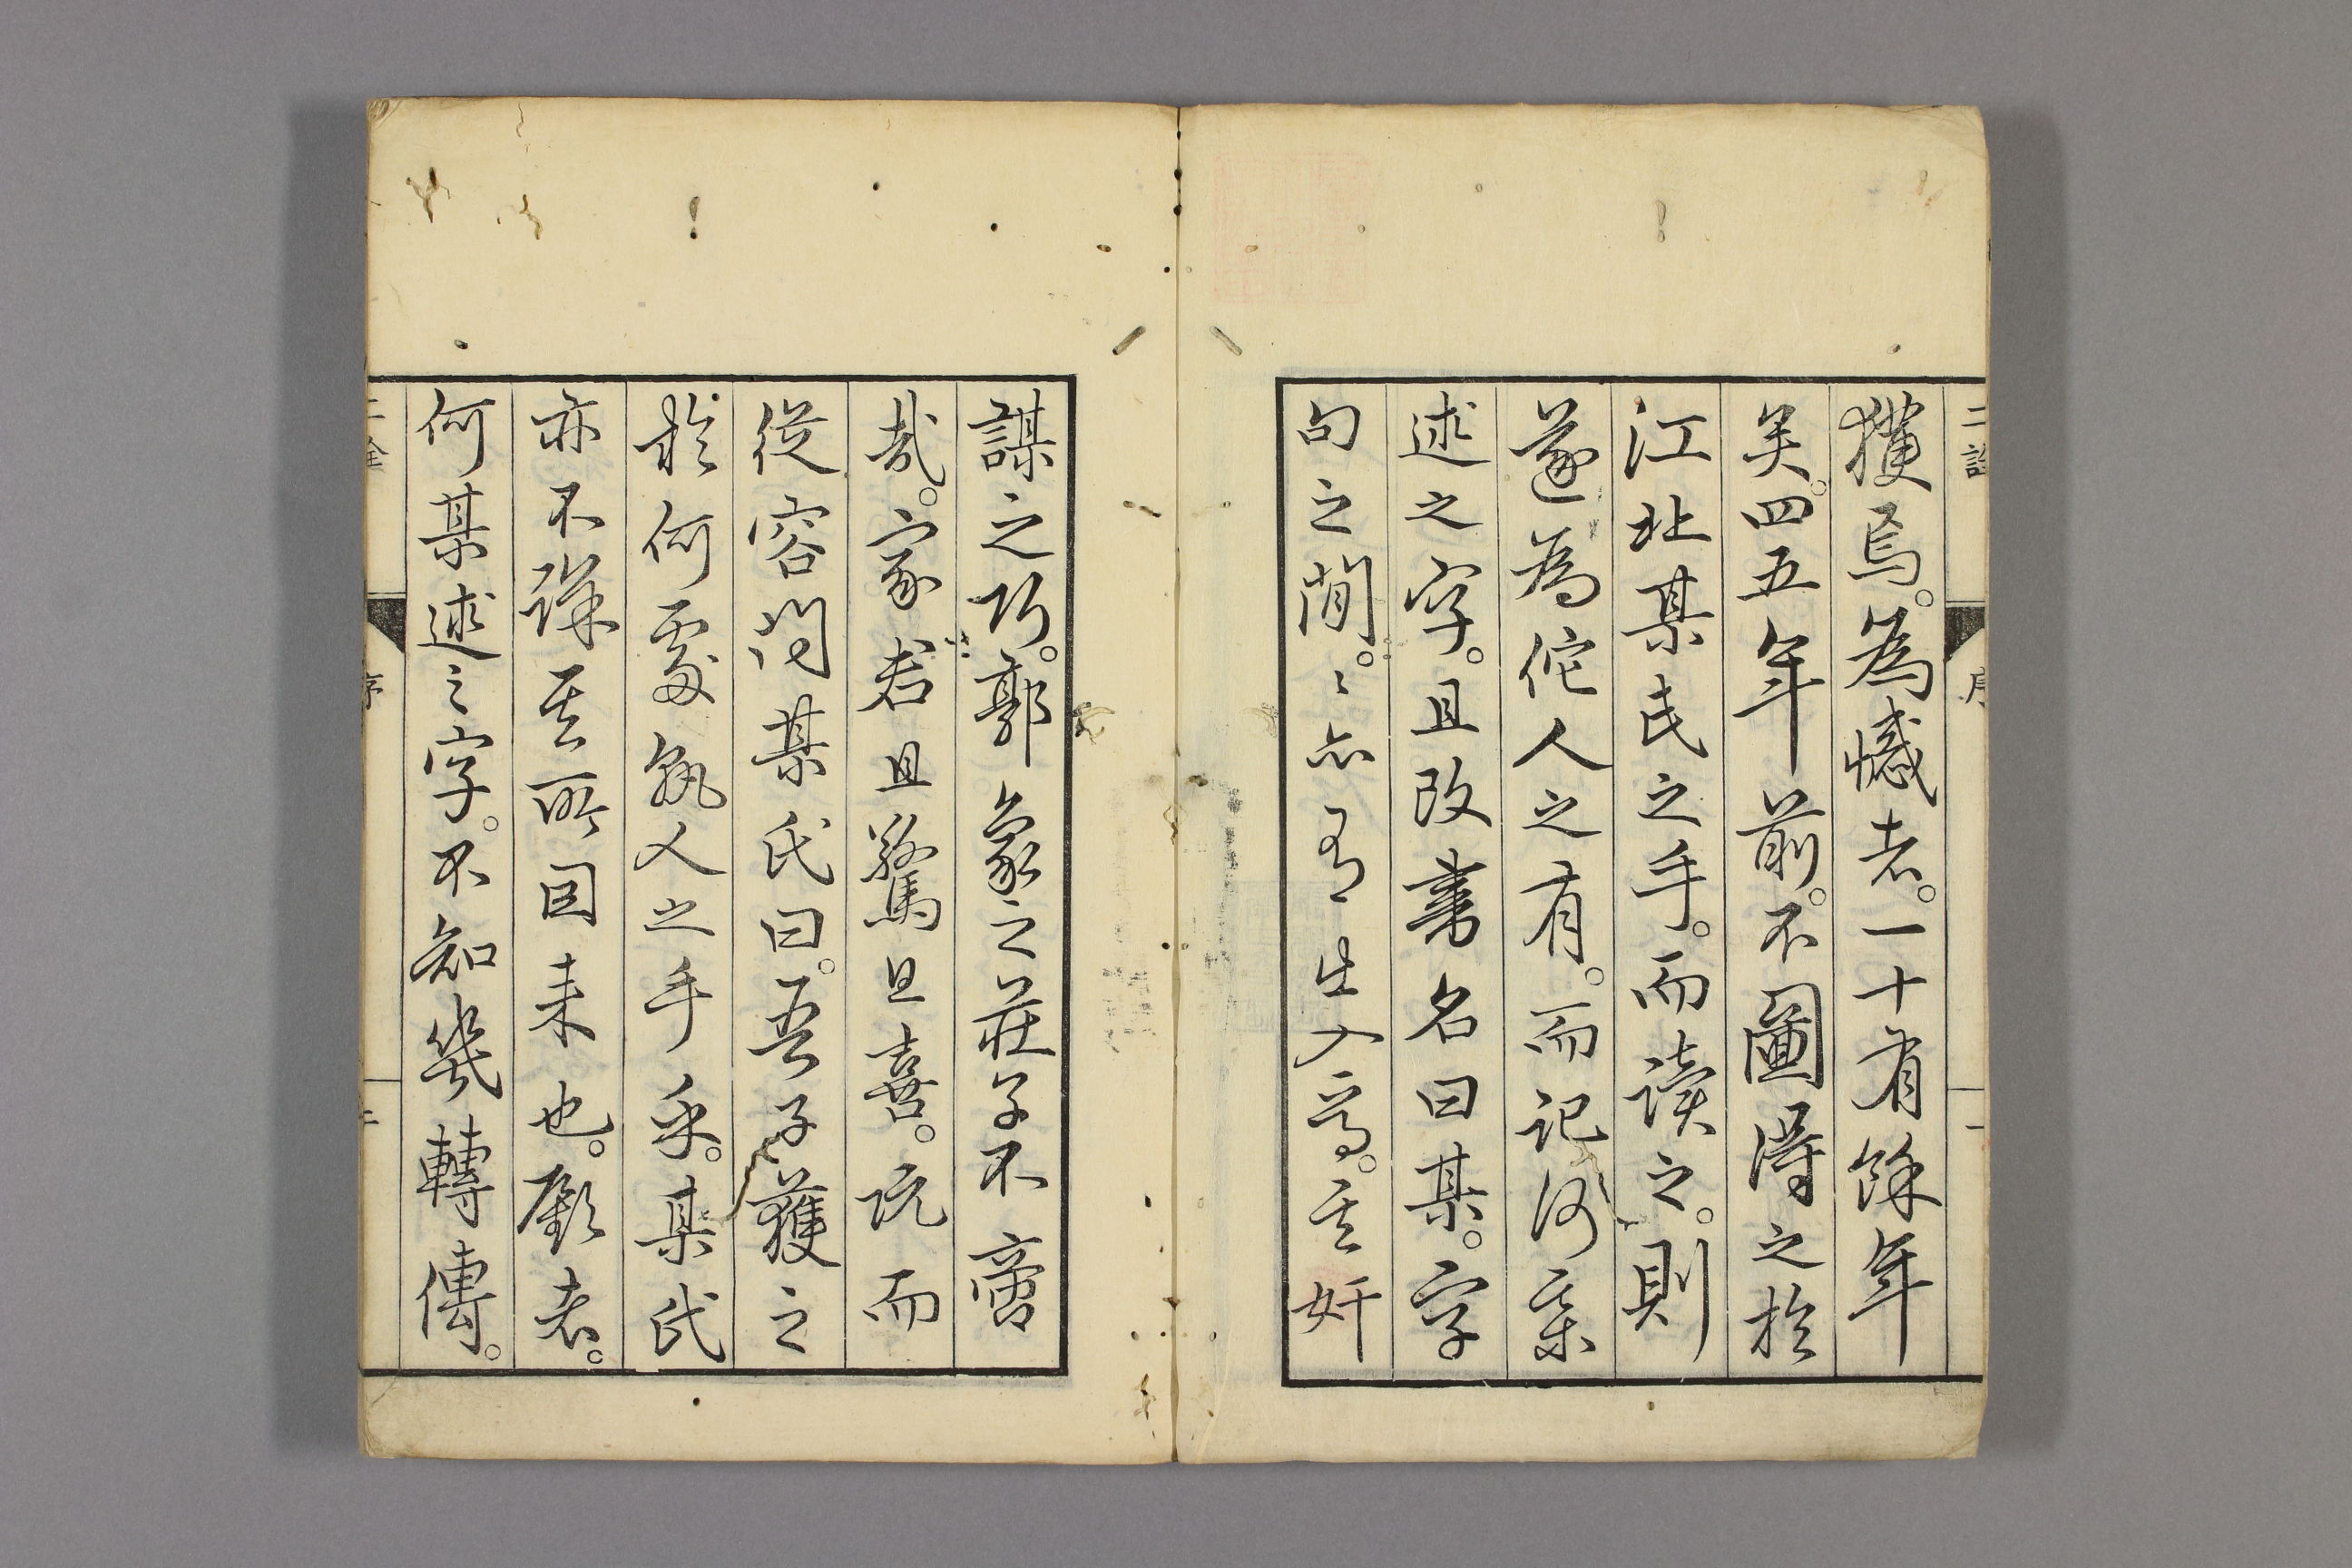 獲焉。為憾者。一十有餘年
矣。四五年前。不圖得之於
江北某氏之手。而讀之。則
遂為佗人之有。而記何某
述之字。且改書名曰某。字
句之間。〻亦有出入焉。其奸
謀之巧。郭象之莊子不啻
哉。家君且驚且喜。玩而
從容問某氏曰。吾子獲之
於何處孰人之手乎。某氏
亦不詳其所因来也。顧者。
何某述之字。不知幾轉傳。
序